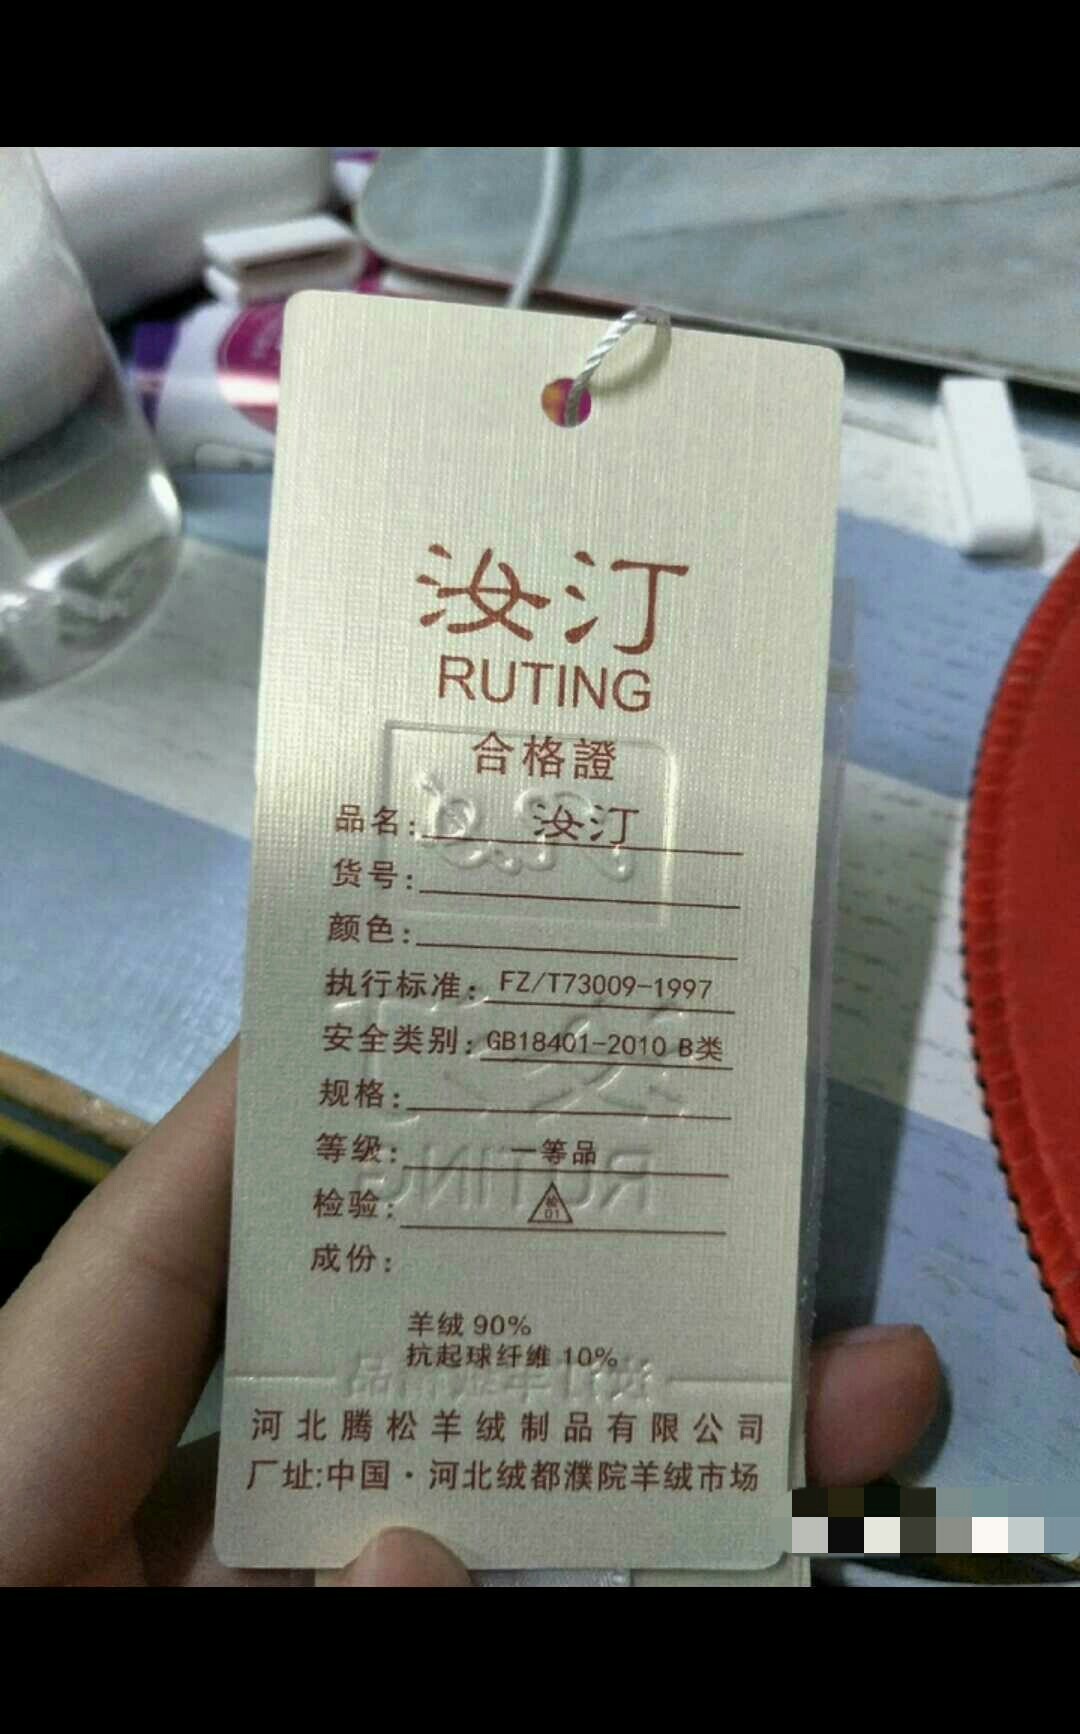 汝汀
RUTING
合格證
品名: 汝汀
货号:
颜色:
执行标准: FZ/T73009-1997
安全类别: GB18401-2010 B类
规格:
等级: 一等品
检验: 检01
成份:
羊绒 90%
抗起球纤维 10%
河北腾松羊绒制品有限公司
厂址:中国·河北绒都濮院羊绒市场